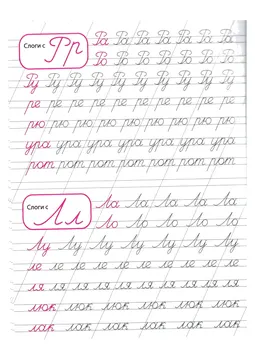 Слоги с Рр Ра Ра Ра Ра Ра Ра Ра
Ро Ро Ро Ро Ро Ро Ро
Ру Ру Ру Ру Ру Ру Ру Ру
ре ре ре ре ре ре ре ре ре
рю рю рю рю рю рю рю рю
ура ура ура ура ура ура ура
рот рот рот рот рот рот рот
Слоги с Лл Ла Ла Ла Ла Ла
Ло Ло Ло Ло Ло
Лу Лу Лу Лу Лу Лу Лу
ле ле ле ле ле ле ле ле ле
ля ля ля ля ля ля ля ля ля
люк люк люк люк люк люк
лак лак лак лак лак лак